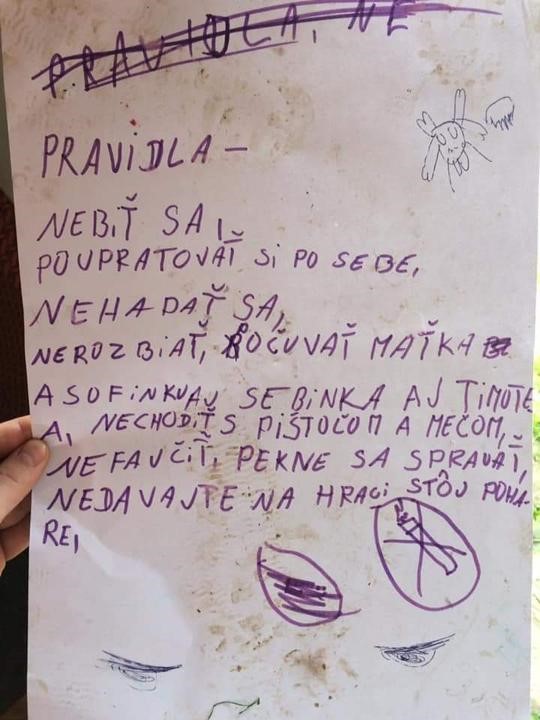 PRAVIDLA, NE
PRAVIDLA –
NEBIŤ SA,
POUPRATOVAŤ Si PO SEBE,
NEHADAŤ SA,
NEROZBiAŤ, POČUVAŤ MAŤKA
A SOFiNKUAJ SEBiNKA AJ TiMUTE
A, NECHODiŤ S PiŠTOĽOM A MEČOM,
NEFAUČiŤ, PEKNE SA SPRAVAŤ,
NEDAVAJTE NA HRACi STÔJ POHA-
RE,